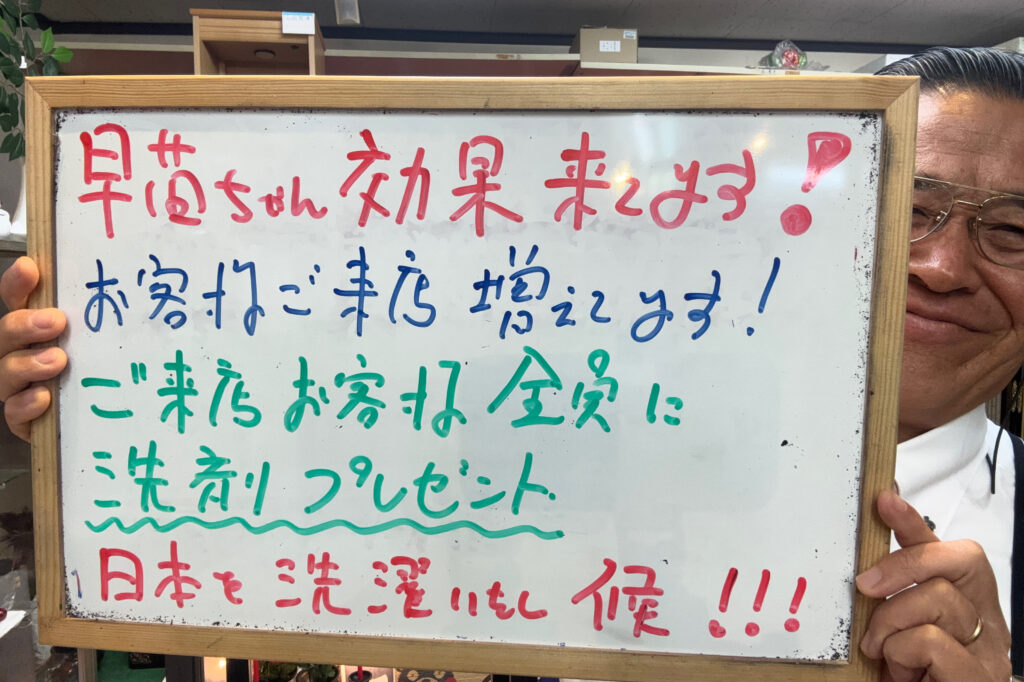 早苗ちゃん効果来てます!
お客様ご来店増えてます!
ご来店お客様全員に
洗剤プレゼント
日本を洗濯いたし候!!!